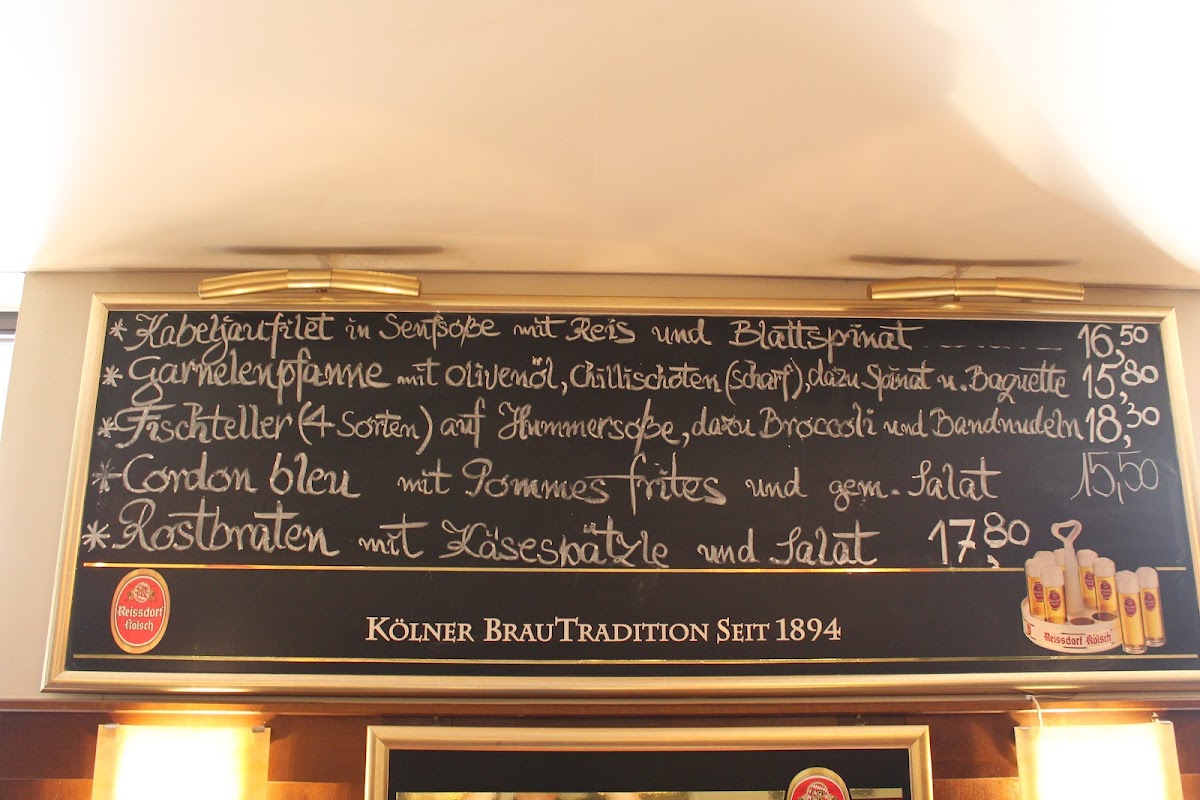 * Kabeljaufilet in Senfsoße mit Reis und Blattspinat 16,50
* Garnelenpfanne mit Olivenöl, Chillischoten (scharf), dazu Spinat u. Baguette 15,80
* Fischteller (4 Sorten) auf Hummersoße, dazu Broccoli und Bandnudeln 18,30
* Cordon bleu mit Pommes frites und gem. Salat 15,50
* Rostbraten mit Käsespätzle und Salat 17,80
Reissdorf
Kölsch
KÖLNER BRAUTRADITION SEIT 1894
Reissdorf Kölsch